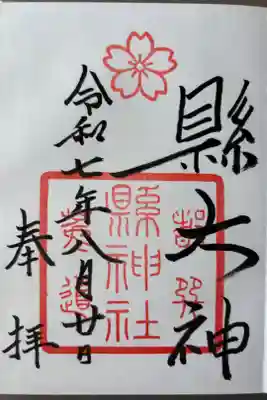 縣大神
都巽
縣神社
菟道
令和七年八月廿日
奉拝